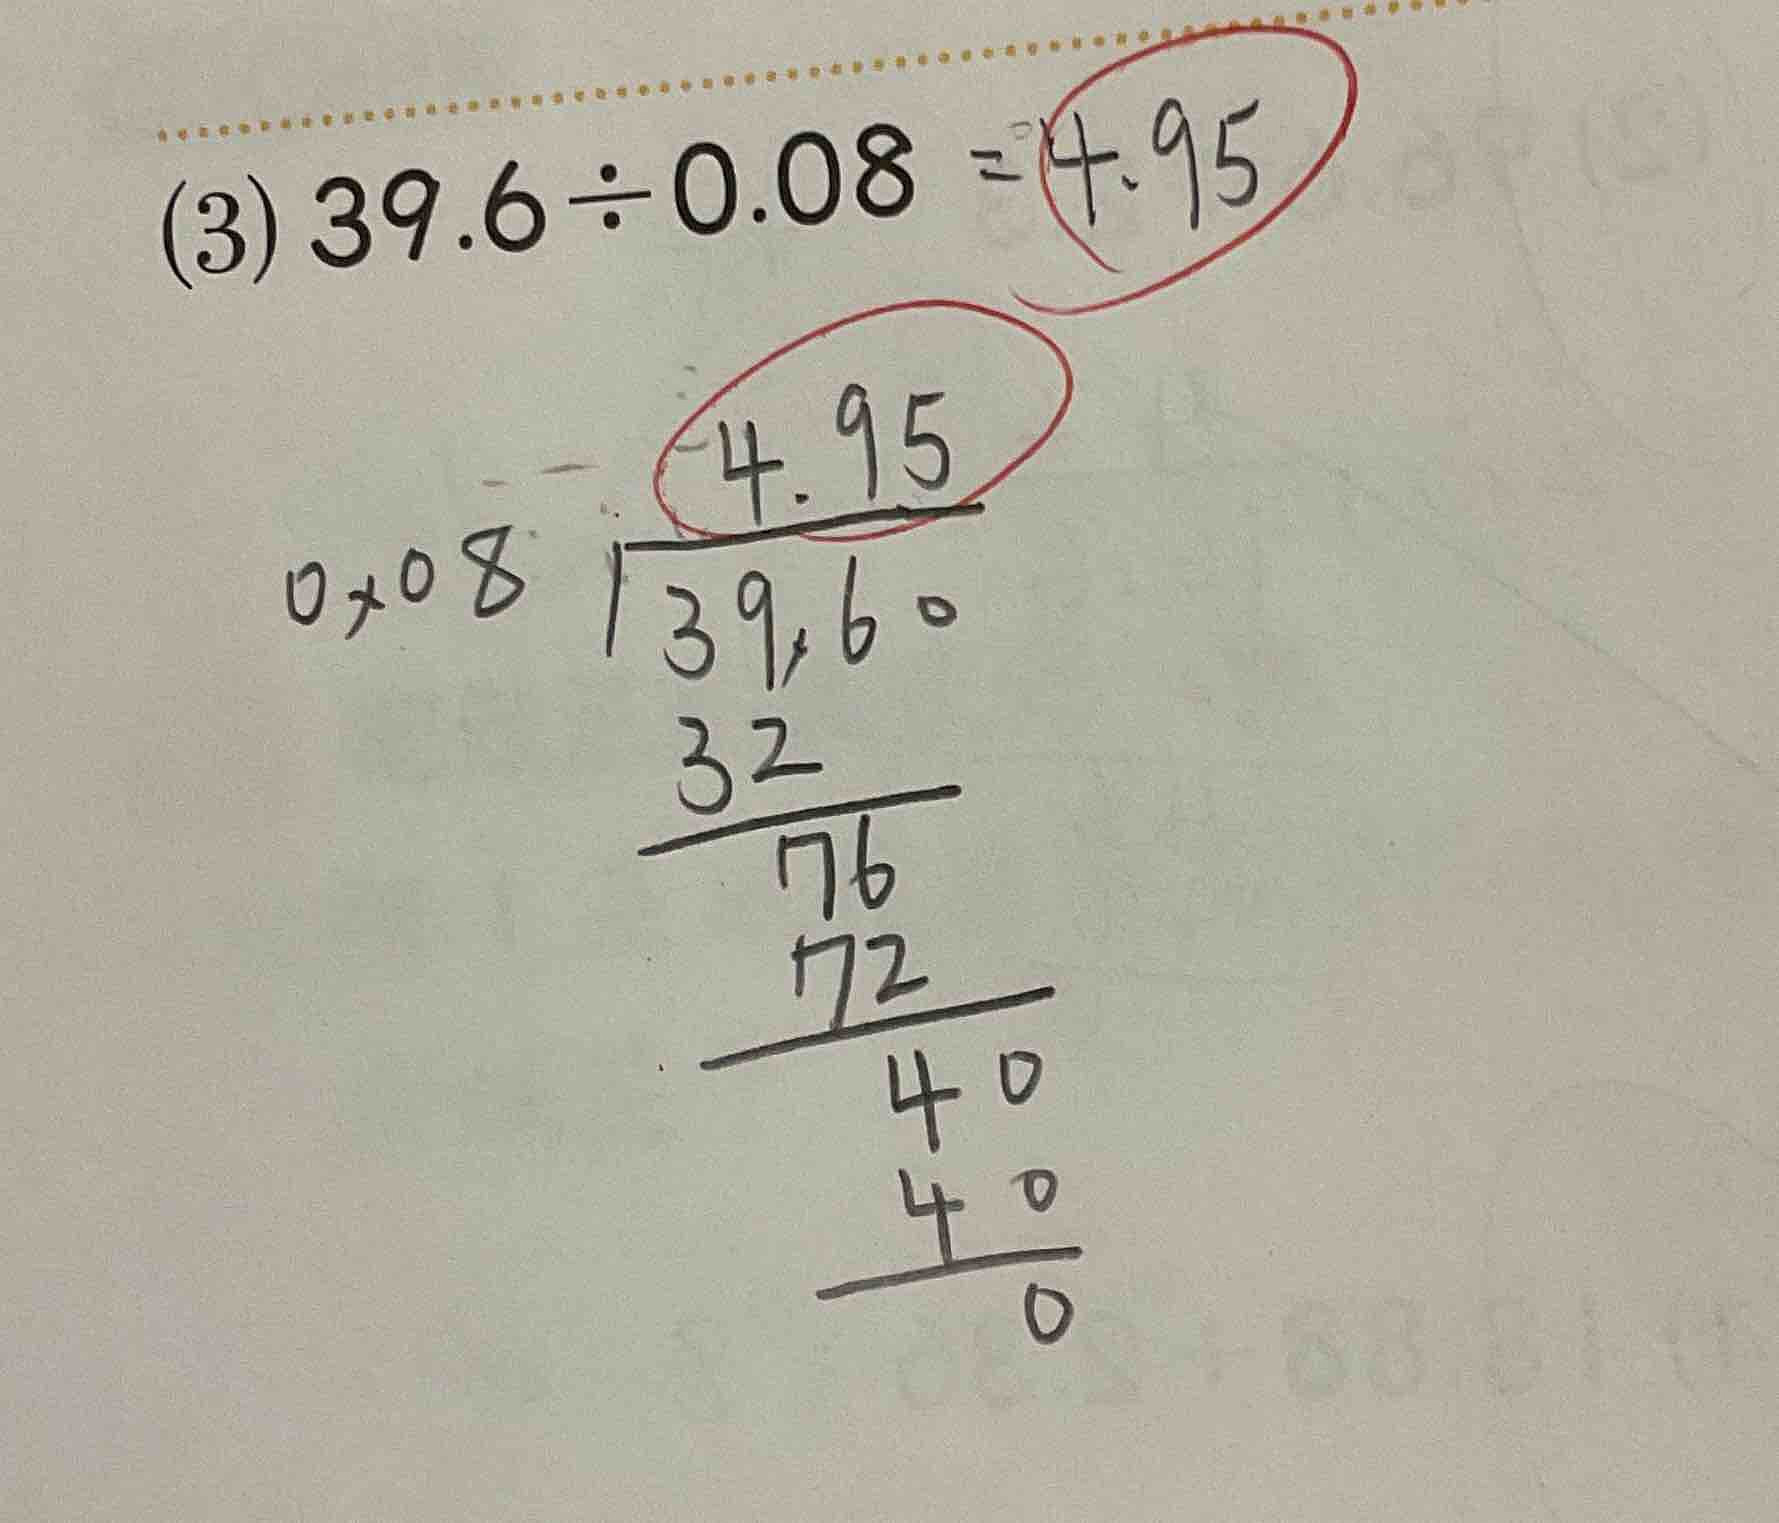 (3) 39.6÷0.08 = 4.95
4.95
0.08 39.60
32
76
72
40
40
0